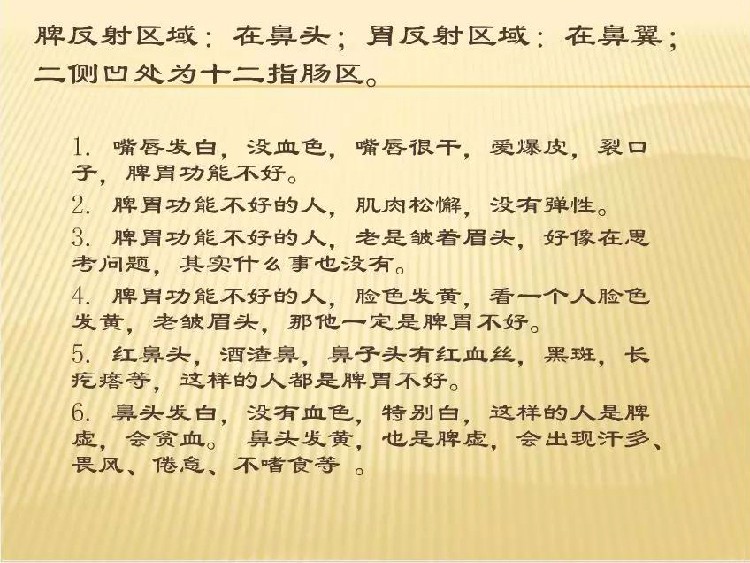 脾反射区域：在鼻头；胃反射区域：在鼻翼；
二侧凹处为十二指肠区。
1. 嘴唇发白，没血色，嘴唇很干，爱爆皮，裂口
子，脾胃功能不好。
2. 脾胃功能不好的人，肌肉松懈，没有弹性。
3. 脾胃功能不好的人，老是皱着眉头，好像在思
考问题，其实什么事也没有。
4. 脾胃功能不好的人，脸色发黄，看一个人脸色
发黄，老皱眉头，那他一定是脾胃不好。
5. 红鼻头，酒渣鼻，鼻子头有红血丝，黑斑，长
疙瘩等，这样的人都是脾胃不好。
6. 鼻头发白，没有血色，特别白，这样的人是脾
虚，会贫血。 鼻头发黄，也是脾虚，会出现汗多、
畏风、倦怠、不嗜食等 。